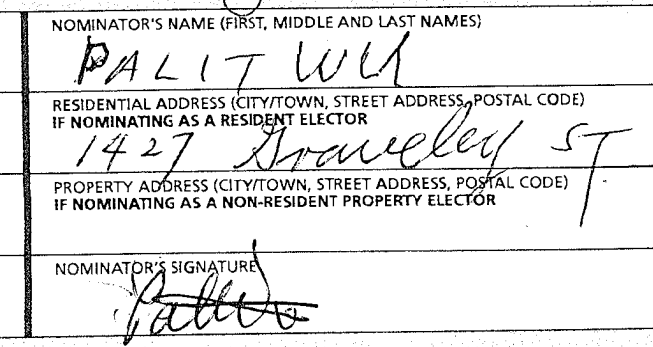 NOMINATOR'S NAME (FIRST, MIDDLE AND LAST NAMES)
PALIT WU
RESIDENTIAL ADDRESS (CITY/TOWN, STREET ADDRESS, POSTAL CODE)
IF NOMINATING AS A RESIDENT ELECTOR
1427 Graveley ST
PROPERTY ADDRESS (CITY/TOWN, STREET ADDRESS, POSTAL CODE)
IF NOMINATING AS A NON-RESIDENT PROPERTY ELECTOR
NOMINATOR'S SIGNATURE